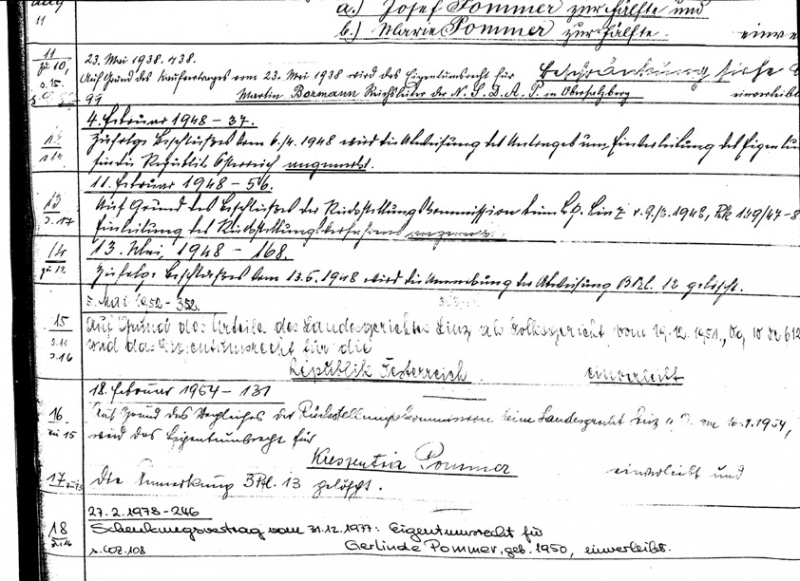 a.) Josef Pommer zur Hälfte und
11
b.) Marie Pommer zur Hälfte
11
zu 10,
23. Mai 1938. 438.
Auf Grund des Kaufvertrages vom 23. Mai 1938 wird das Eigentumsrecht für Beschränkung siehe
99 Martin Bormann Reichsleiter der N. S. D. A. P. in Obersalzberg einverleibt
4. Februar 1948 - 37.
Zufolge Beschlusses vom 1948 wird die Abweisung des Antrages um Einverleibung des Eigentums
für die Republik Österreich angemerkt.
11. Februar 1948 - 56.
13
z. 17
Auf Grund des Beschlusses der Rückstellungskommission beim Lg. Linz v. 9./3. 1948, Rk 139/47-8
Einleitung des Rückstellungsverfahrens
14
zu 12
13. Mai, 1948 - 168.
Zufolge Beschlusses vom 13.5.1948 wird die Anmerkung der Abweisung BPZl. 12 gelöscht.
Mai 1952 - 352.
15
Auf Grund des Urteils des Landesgerichtes Linz als Volksgericht, vom 19.12.1951,
z. 16
wird das Eigentumsrecht für die
Republik Österreich einverleibt
18. Februar 1954 - 131
16
zu 15
Auf Grund des Vergleiches der Rückstellungskommission beim Landesgericht Linz 1954,
wird das Eigentumsrecht für
Kreszentia Pommer einverleibt und
17 zu 13
die Anmerkung BPZl. 13 gelöscht.
27.2.1978-246
18
Schenkungsvertrag vom 31.12.1977: Eigentumsrecht für
Gerlinde Pommer, geb. 1950, einverleibt.